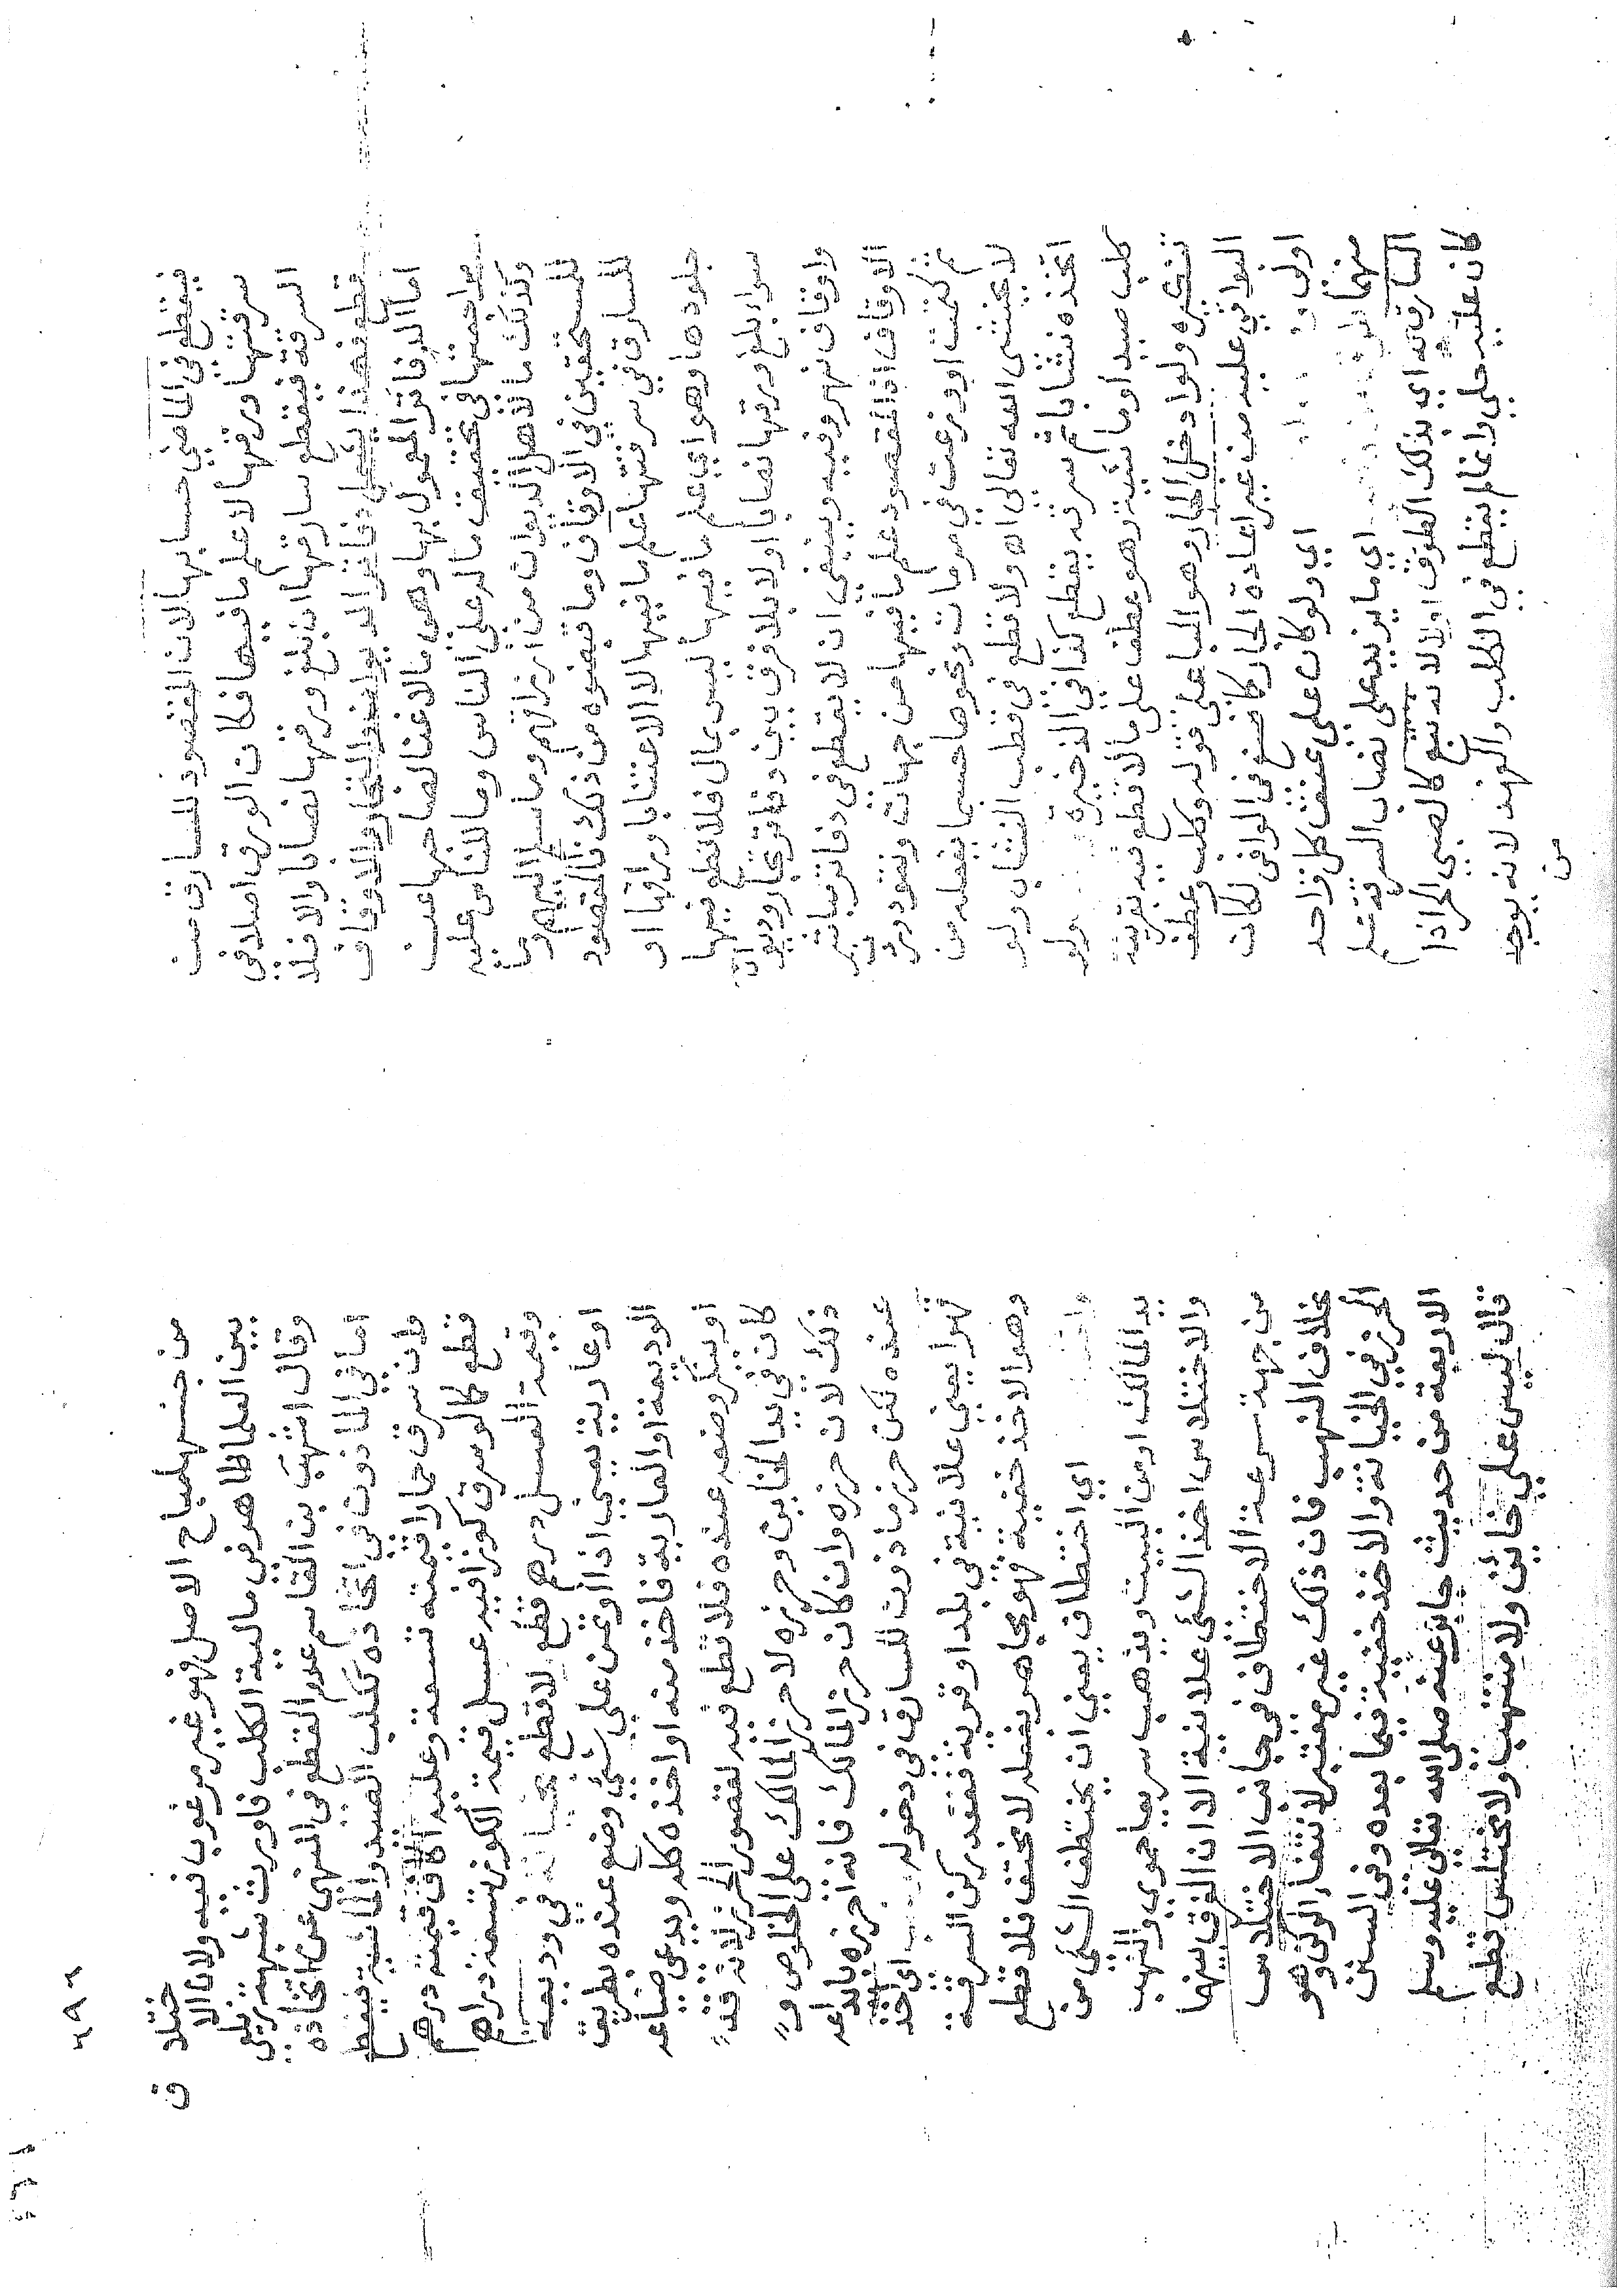 فيقطع في الماضي حسابها لان المقصود للسارق من
سرقتها ورقها لا علم ما فيها فكان الورق اصلا في
السرقة فيقطع سارقها ان بلغ ورقها نصابا والا فلا
قطع فهذا يشمل دفاتر الديوان والتجار والاوقاف
اما الدفاتر المعمول بها وهي مالا غنا لصاحبها عن
مراجعتها في تحقيق ماله على الناس وما للناس عليه
وكذلك مالاهل الديوان من ارزاقهم وما سلم اليهم
للمستحقين في الاوقاف وما قبضوه من ذلك فالمقصود
للسارق في سرقتها علم ما فيها لا الاعتنا باوراقها او
جلودها وهو اي علم ما فيها ليس بمال فلا قطع فيها
سواء بلغ ورقها نصابا اولا بلا فرق بين دفاتر تجار وديوان
واوقاف نهر وفيه وينبغي ان لا يقطع في دفاتر
الاوقاف اذا المقصود علم ما فيها من جهات ونقود
ثم كتمت او وزعت في مرمات ونحوها حسبما يفعله من
لا يخشى الله تعالى اه ولا قطع في قطب النشاب ولو
اتخذه نشابا ثم سرقه يقطع كذا في الذخيرة ولو
كلب صيد او ماشية وهو عطف على مالا قطع فيه بقرينة
تنكيره ولو ادخل الجار وهو البا على قوله وكلب وعطف
البواقي عليه من غير اعادة الجار كما صنع في الوافي لكان
اولى اي ولو كان على عنق كل واحد
منهما اي ما يزيد على نصاب السرقة علم
السارق به اي بذلك الطوق اولا لانه تبع كالصبي الحر اذا
كان عليه حلي وانما لم يقطع في الكلب والفهد لانه يوجد
من
من جنسهما مباح الاصل فهو غير مرغوب فيه ولان
بين العلما ظاهر في مالية الكلب فاورث شبهة زيلعي
وقال بن القاسم عدم القطع في النهي عن اتخاذه
اما في الماذون في اتخاذه ككلب الصيد والماشية فيقطع
فان سرق حمارا قيمته تسعة وعليه اكاف قيمته درهم
قطع كالو سرق كوزا فيه عسل قيمة الكوز تسعة دراهم
وقيمة العسل درهم قطع لا قطع بخيانة في وديعة
او عارية يعني اذا اؤتمن على شي وضع عنده بطريق
الوديعة والعارية فاخذ منه او اخذه كله ويدعي ضياعه
او ينكر وضعه عنده فلا قطع فيه لقصور الحرز لانه قد
كان في يد الخاين وحرزه لا حرز المالك على الخلوص و
ذلك لان حرزه وان كان حرز المالك فانه احرزه بايداعه
عنده لكن حرز ماذون للسارق في دخوله اي اخذ
قهرا يعني علانية في بلد او قرية ففقد ركن السرقة
وهو الاخذ خفية فهو مجاهر بفعله لا مختف فلا قطع
اي اختطاف يعني ان يختطف الشي من
يد المالك او من البيت ويذهب سريعا حموي والنهب
والاختلاس اخذ الشي علانية الا ان الفرق بينهما
من جهة سرعة الاختطاف في جانب الاختلاس
بخلاف النهب فان ذلك غير معتبر لانتفاء الركن وهو
الحرز في الخيانة والاخذ خفية فيما بعده وفي السنن
الاربعة من حديث جابر عنه صلى الله تعالى عليه وسلم
قال ليس على خائن ولا منتهب ولا مختلس قطع